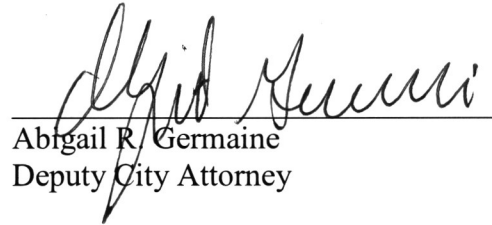 Abigail R. Germaine
Deputy City Attorney